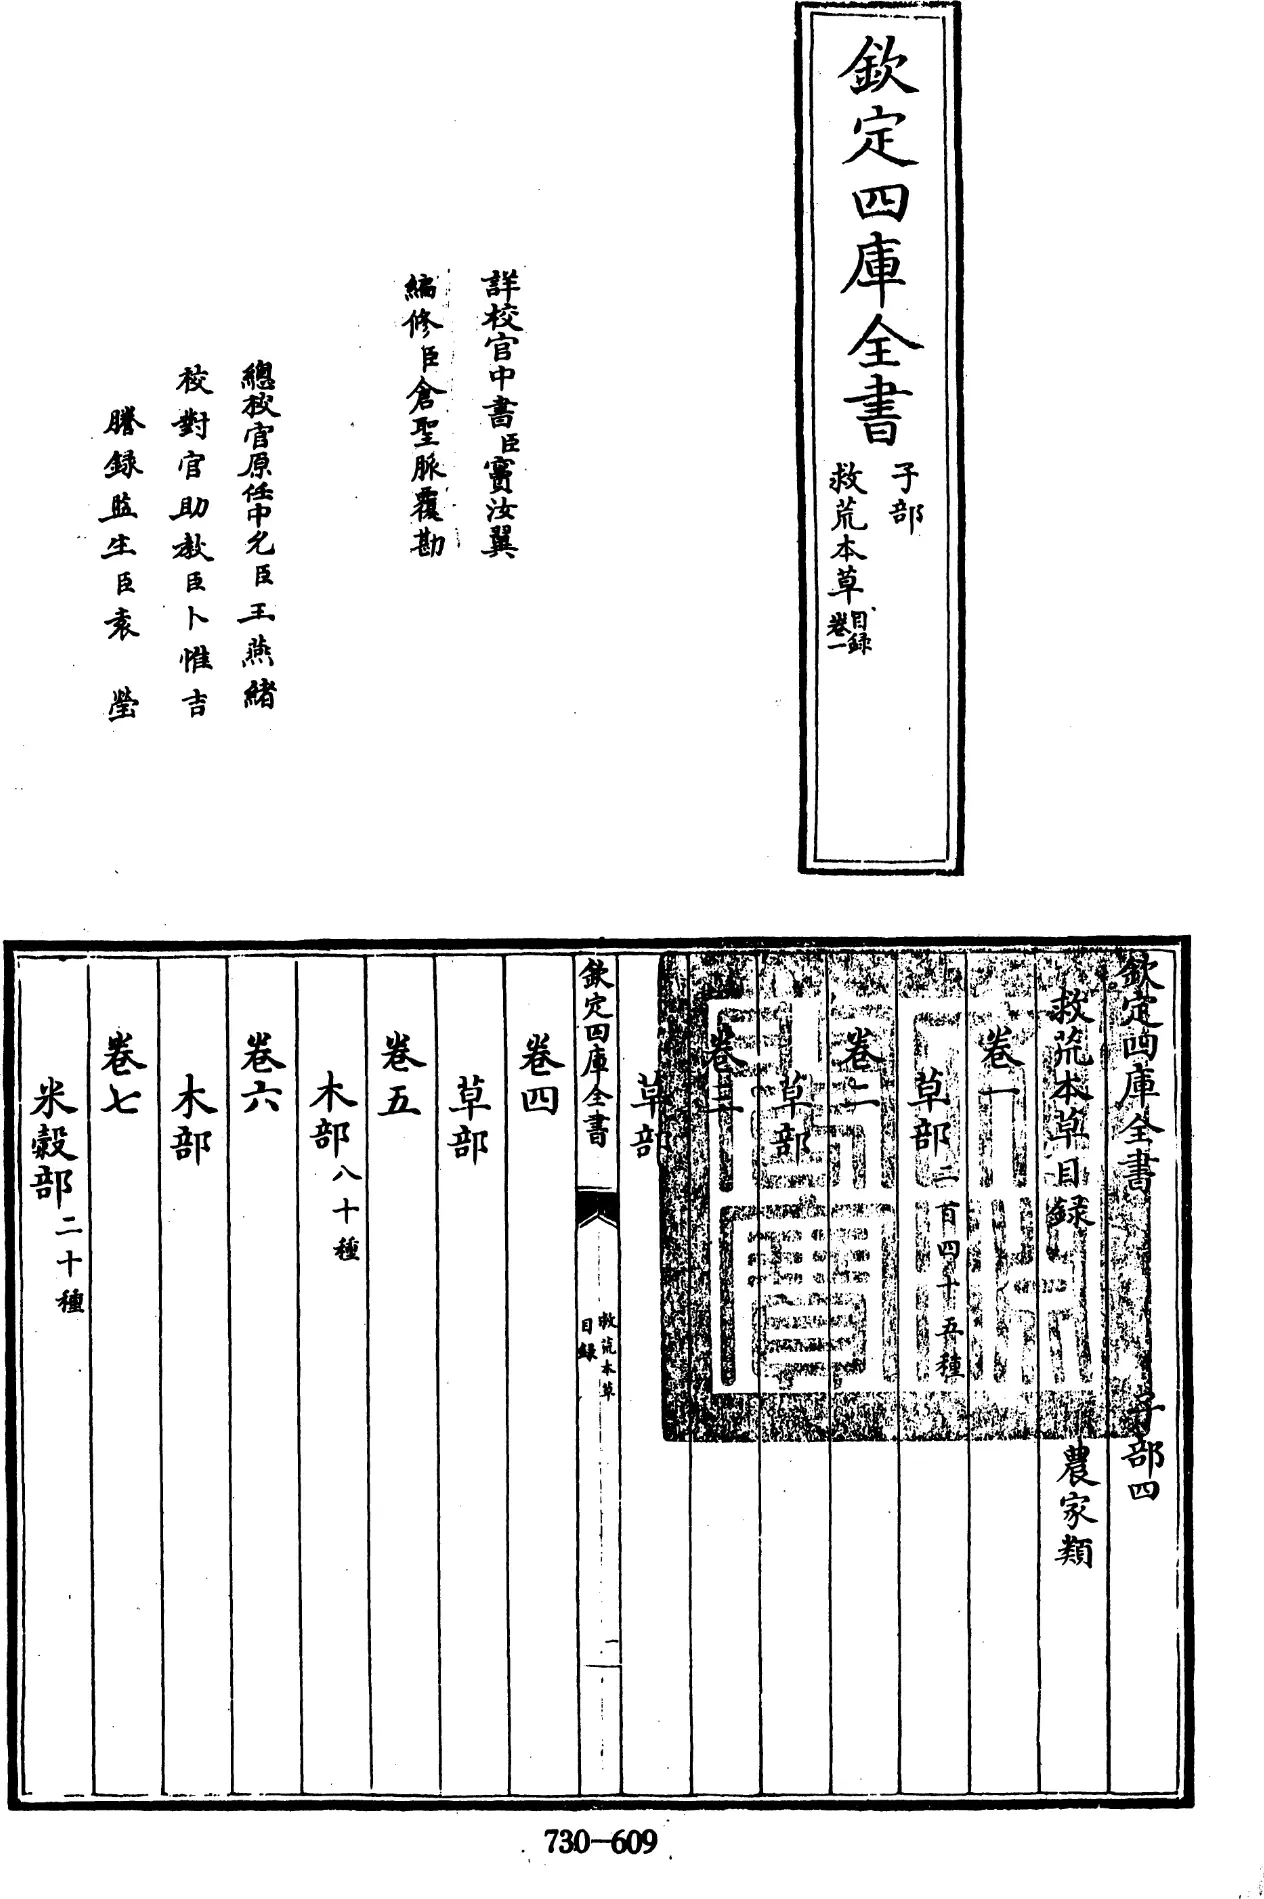 欽定四庫全書
子部
救荒本草
目録
卷一
詳校官中書臣竇汝翼
編修臣倉聖脈覆勘
總校官原任中允臣王燕緒
校對官助教臣卜惟吉
謄録監生臣袁瑩
欽定四庫全書 子部四
救荒本草目録 農家類
卷一
草部二百四十五種
卷二
草部
卷三
草部
欽定四庫全書
救荒本草
目録
一
卷四
草部
卷五
木部八十種
卷六
木部
卷七
米穀部二十種
730-609